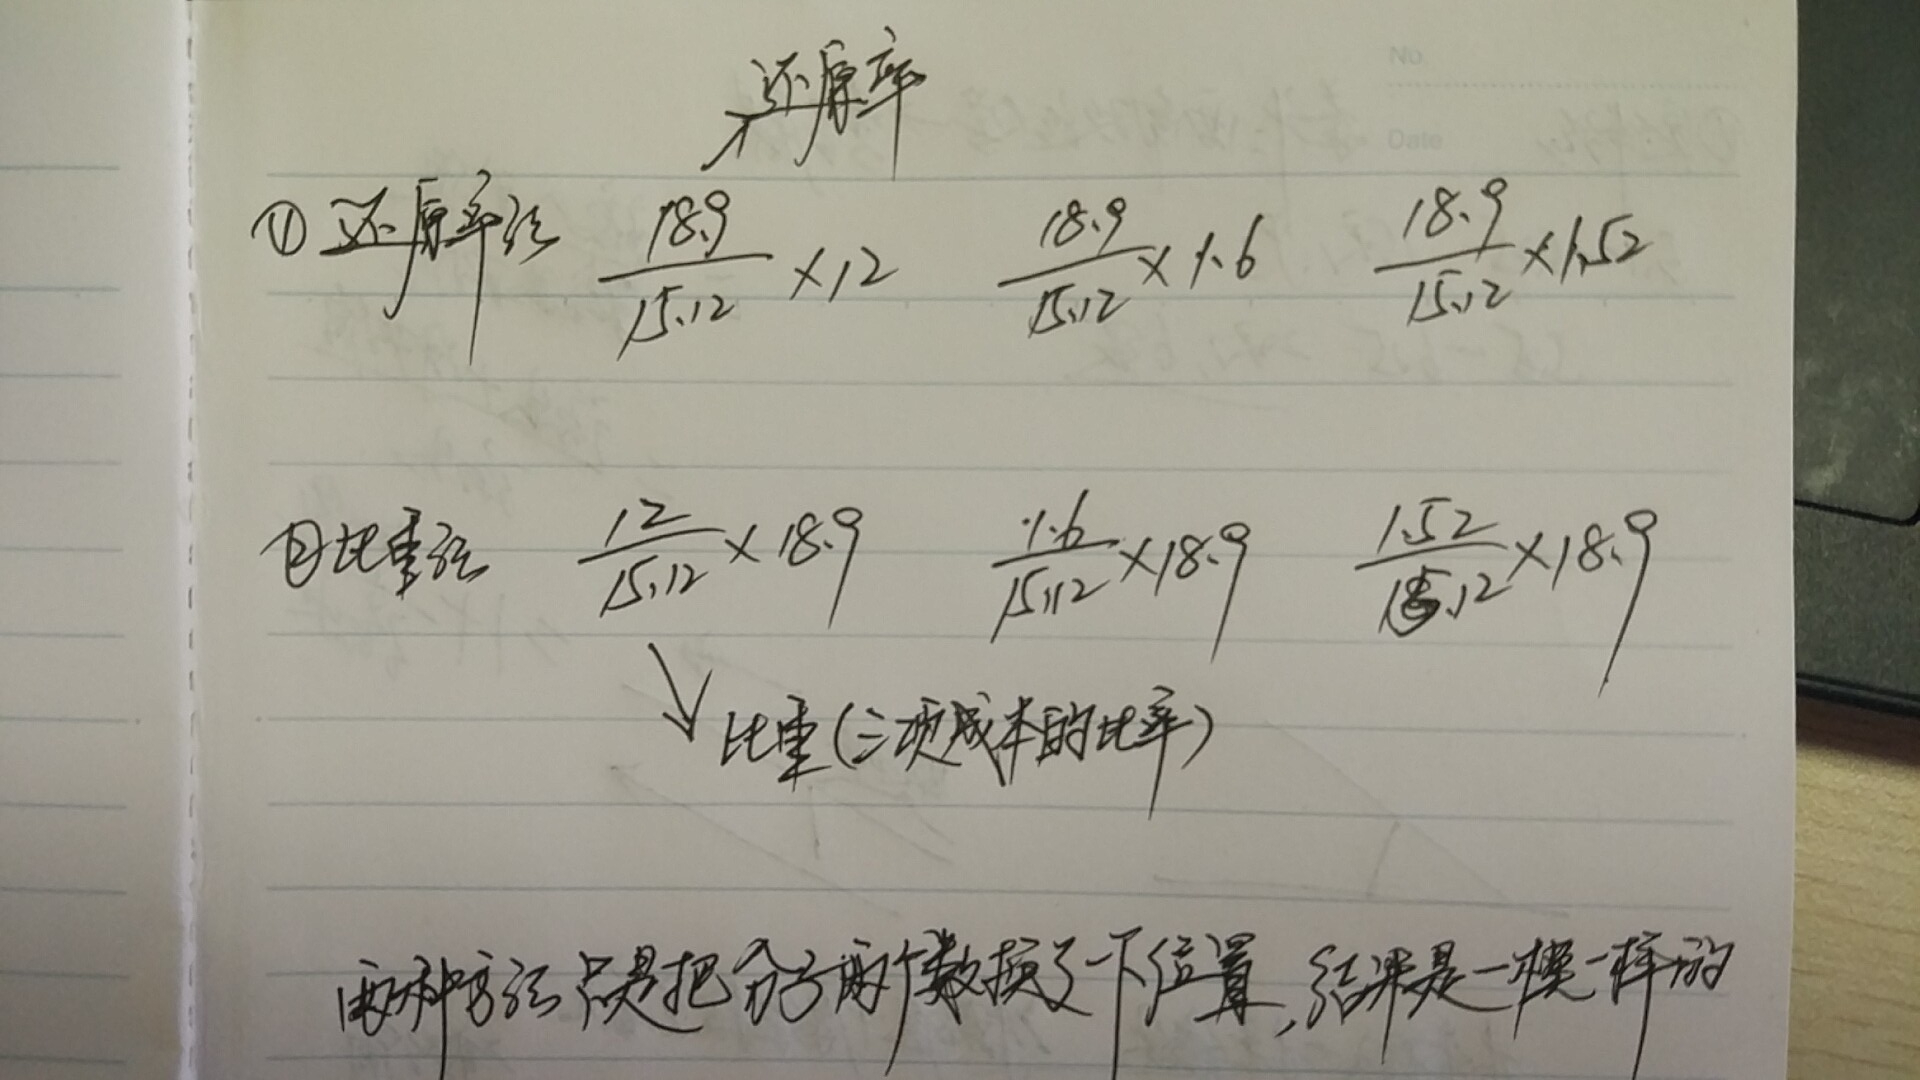 还原率
① 还原率法 18.9/15.12 × 12 18.9/15.12 × 1.6 18.9/15.12 × 1.52
② 比重法 12/15.12 × 18.9 1.6/15.12 × 18.9 1.52/15.12 × 18.9
比重(三项成本的比率)
两种方法只是把分子两个数换了一下位置,结果是一模一样的
No.
Date